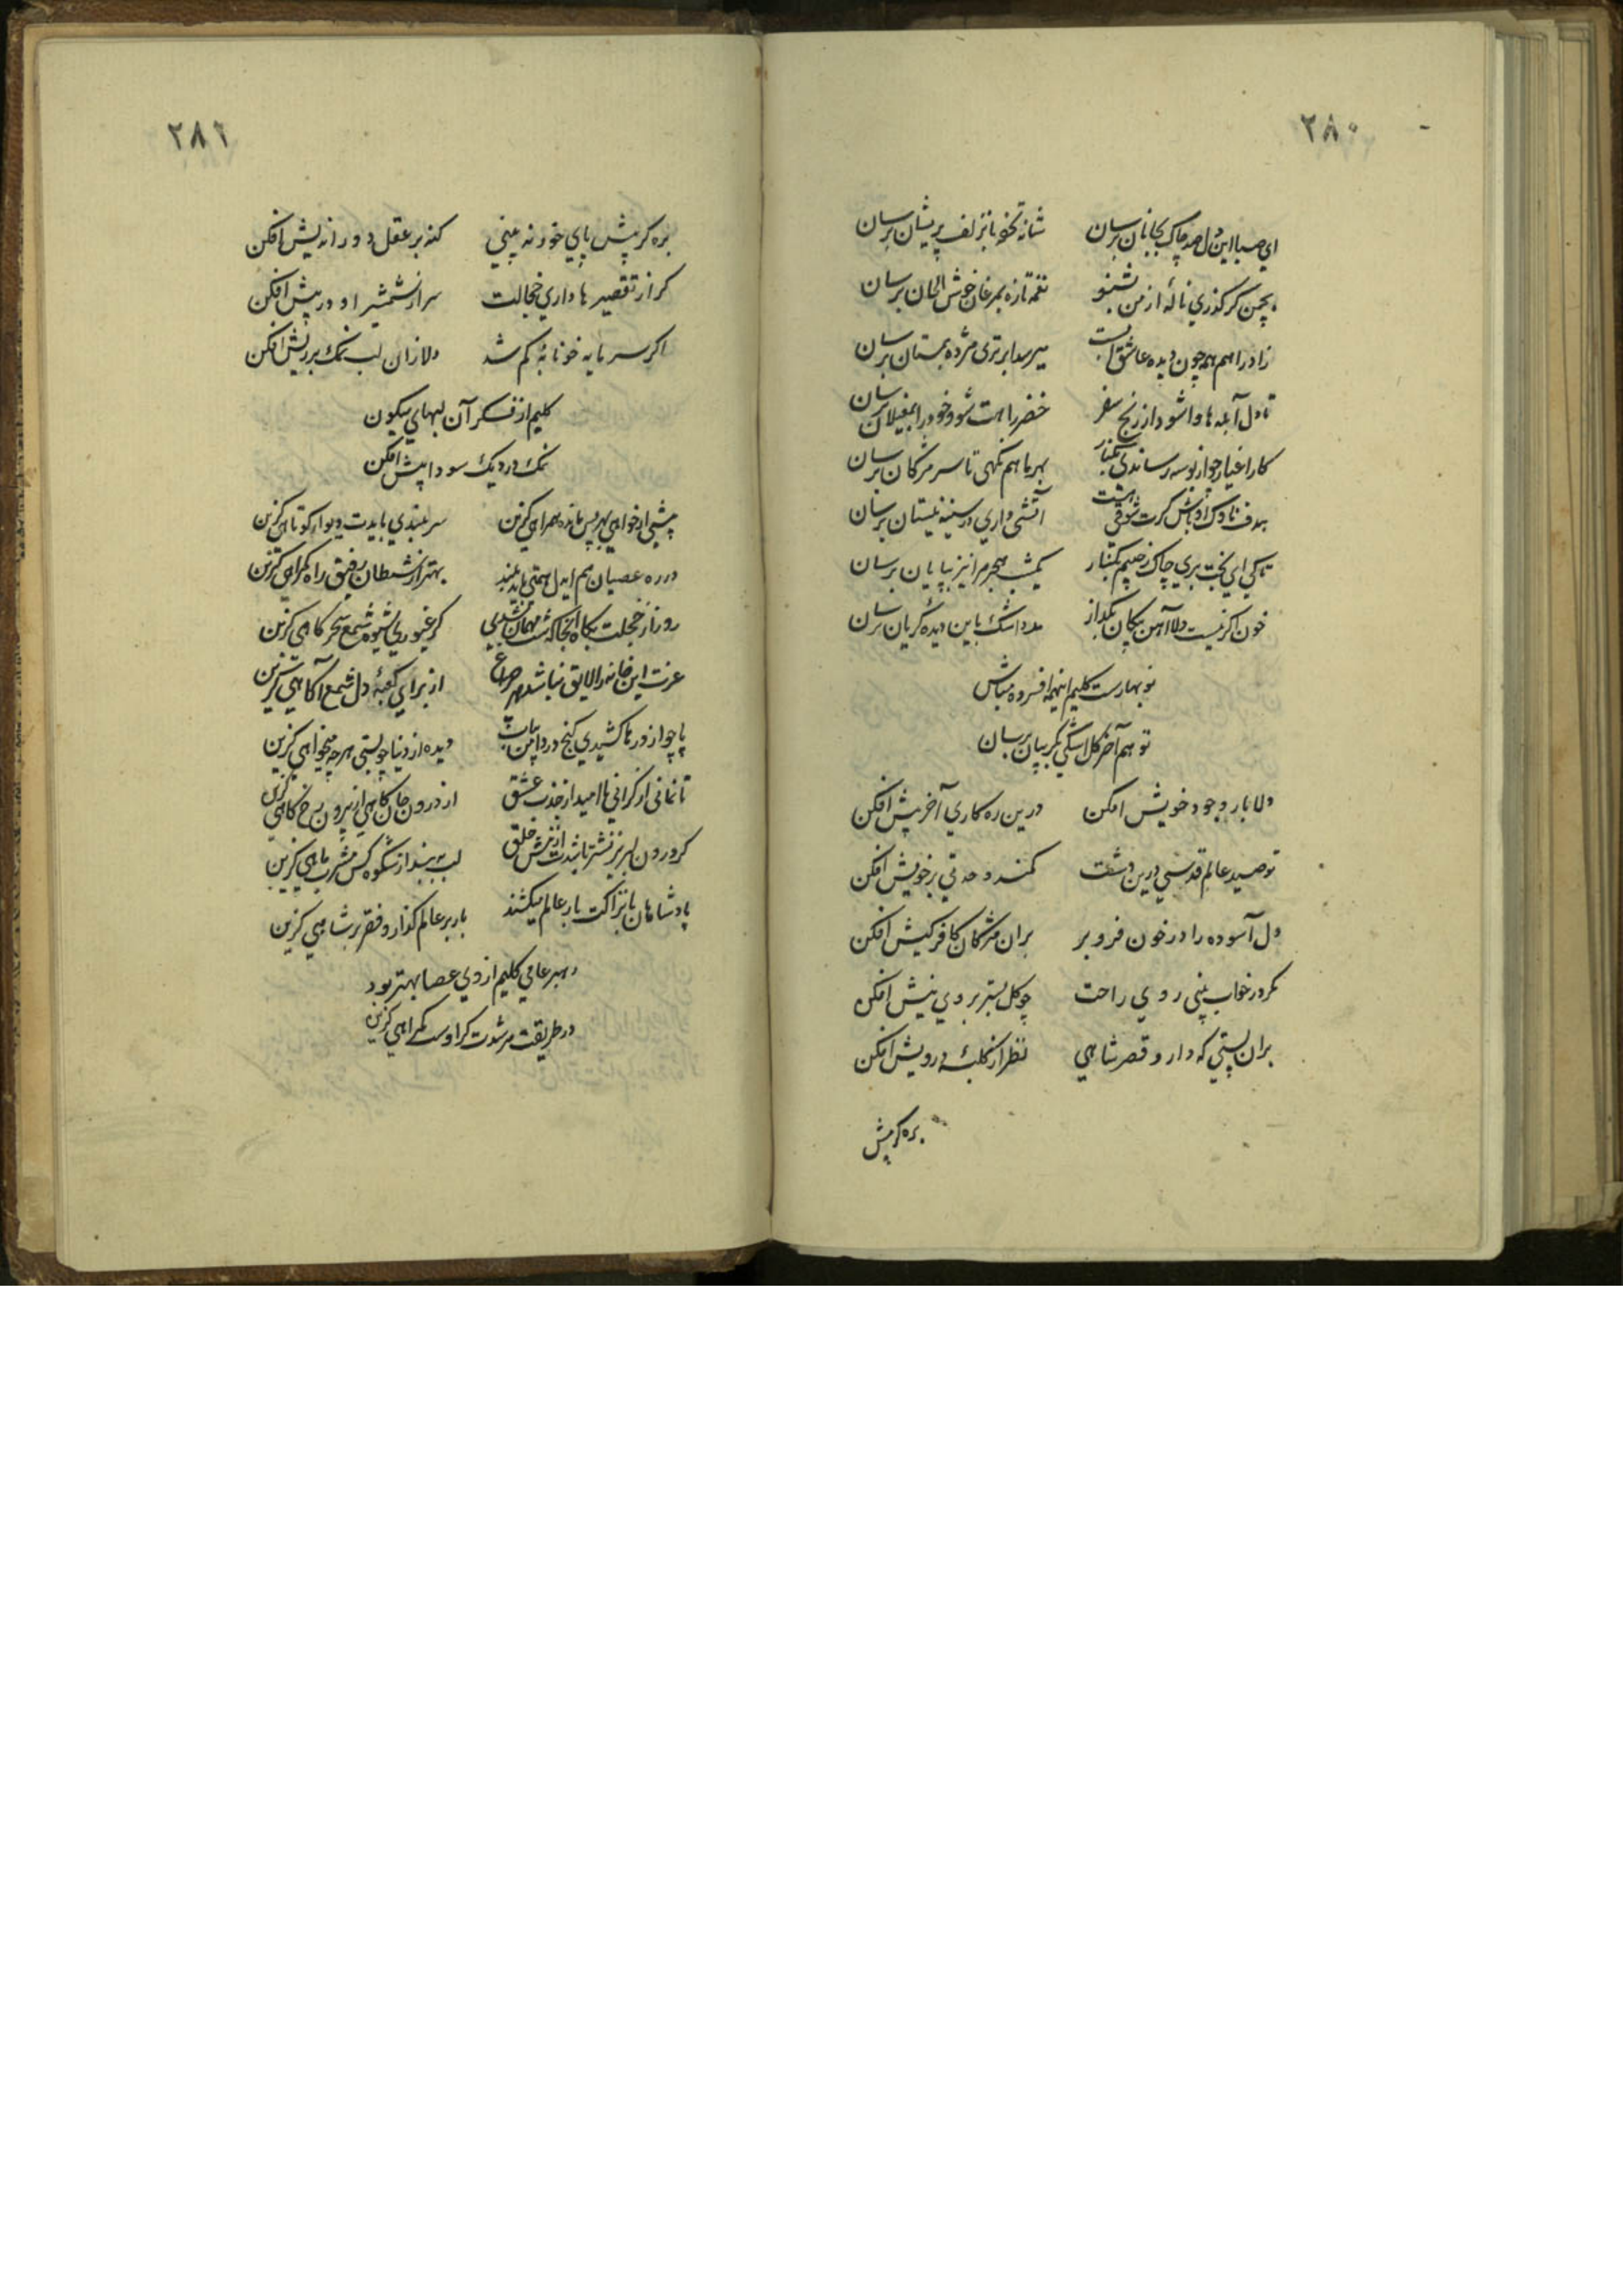 ۲۸۰
ای صبا این دل صد چاک بجانان برسان شانه تحفه بآنزلف پریشان برسان
بچمن گر گذری نالهٔ از من بشنو نغمه تازه بمرغان خوش الحان برسان
زاد راهم همه چون دیده عاشق آبست میرسد ابر تری مژده بستان برسان
تا دل آبله ها وا شود از رنج سفر خضر راهت شو و خود را بمغیلان برسان
کار اغیار چو از بوسه رساندی بکنار بهر ما هم نگهی تا سر مژگان برسان
هدف ناوک او باش گرت شوقی هست آتشی داری در سینه نیستان برسان
تا کی ای بخت بری چاک ز جیبم بکنار یکشب هجر مرا نیز بپایان برسان
خون اگر نیست دلا آهن پیکان بگداز مدد اشک باین دیده گریان برسان
نو بهارست کلیم اینهمه افسرده مباش
تو هم آخر گل اشکی بگریبان برسان
دلا بار وجود خویش افکن درین ره کاری آخر پیش افکن
تو صید عالم قدسی درین دشت کمند وحدتی بر خویش افکن
دل آسوده را در خون فرو بر بران مژگان کافر کیش افکن
مگر در خواب بینی روی راحت چو گل بستر بروی نیش افکن
بران پستی که دارد قصر شاهی نظر از کلبهٔ درویش افکن
بره گر پیش
۲۸۱
بره گر پیش پای خود نه بینی گنه بر عقل دور اندیش افکن
گر از تقصیر ها داری خجالت سر از شمشیر او در پیش افکن
اگر سرمایه خونابهٔ کم شد دلا زان لب نمک بر ریش افکن
کلیم از فکر آن لبهای میگون
نمک در دیک سودا بیش افکن
پیشی ار خواهی بهر پس مانده همراهی گزین سربلندی بایدت دیوار کوتاهی گزین
در ره عصیان هم ایدل همتی باید بلند بهتر از شیطان رفیق راه گمراهی گزین
روز از خجلت بکاه آنجا که شب مهمان شدی گر غیوری شیوهٔ شمع سحرگاهی گزین
عزت این خانه را لایق نباشد هر چراغ از برای کعبهٔ دل شمع آگاهی گزین
پا چو از درها کشیدی گنج در دامن بیاب دیده از دنیا چو بستی هرچه میخواهی گزین
تا نمانی از گرانی ها امید از جذب عشق از درون جان کاهی از بیرون رخ کاهی گزین
گر درون لبریز نشتر باشدت از نیش خلق لب ببند از شکوه کس مشرب ماهی گزین
پادشاهان با نزاکت بار عالم میکشند بار بر عالم گذار و فقر بر شاهی گزین
رهبر عامی کلیم از وی عصا بهتر بود
در طریقت مرشدت گر اوست گمراهی گزین